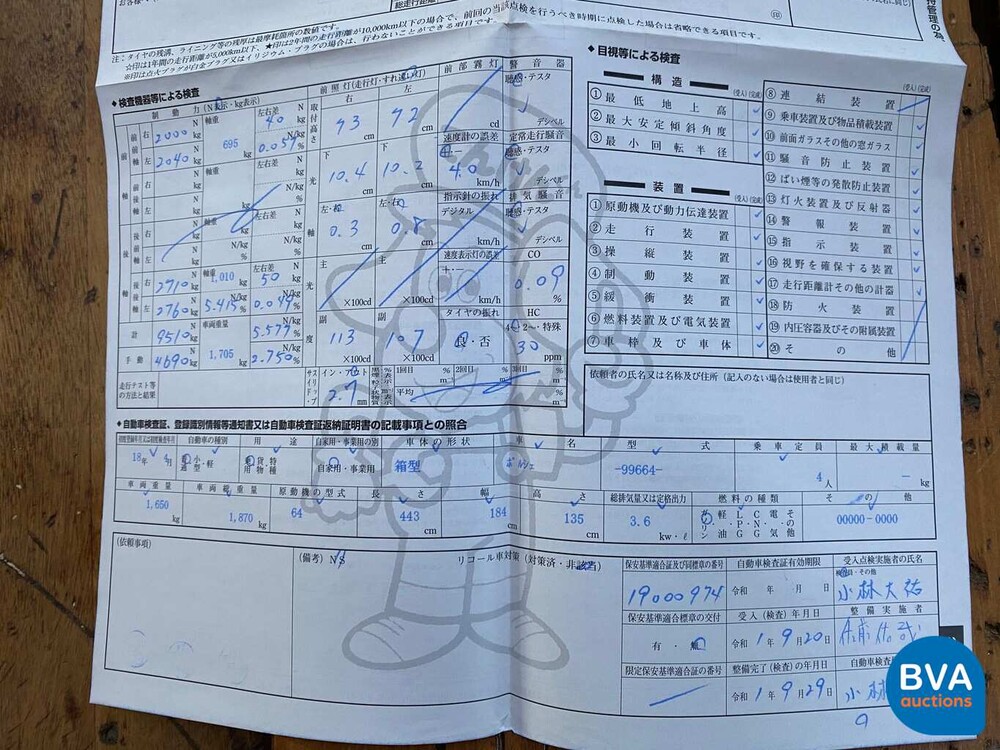 総走行距離
注：タイヤの残溝、ライニング等の残厚は最摩耗箇所の数値です。
☆印は1年間の走行距離が5,000km以下、★印は2年間の走行距離が10,000km以下の場合で、前回の当該点検を行うべき時期に点検した場合は省略できる項目です。
※印は点火プラグが白金プラグ又はイリジウム・プラグの場合は、行わないことができる項目です。
◆検査機器等による検査
制動力(N表示・kg表示)
前照灯(走行灯・すれ違い灯)
前部霧灯
警音器
聴感・テスタ
前前軸 右 2000 N kg
軸重 695 kg
左右差 40 N kg
左 2040 N kg
0.057 N/kg %
取付高さ
右 73 cm
左 72 cm
cd
デシベル
速度計の誤差
定常走行騒音
聴感・テスタ
40 km/h
デシベル
光軸
下 10.4 cm
下 10.2 cm
左・右 0.3 cm
左・右 0.8 cm
指示針の振れ
デジタル
km/h
排気騒音
聴感・テスタ
デシベル
速度表示灯の誤差
km/h
CO
0.09 %
後後軸 右 2710 N kg
軸重 1,010 kg
左右差 50 N kg
左 2760 N kg
5.415 N/kg %
0.049 N/kg %
計 9510 N kg
車両重量 1,705 kg
5.577 N/kg %
手動 4690 N kg
2.750 N/kg %
光度
主 ×100cd
主 ×100cd
副 113 ×100cd
副 107 ×100cd
タイヤの振れ
良・否
HC
4・2・特殊
30 ppm
走行テスト等の方法と結果
サイドスリップ
イン・アウト
2.7 mm
1回目 %
2回目 %
3回目
平均
◆目視等による検査
構造
(受入)(完成)
①最低地上高
②最大安定傾斜角度
③最小回転半径
装置
(受入)(完成)
①原動機及び動力伝達装置
②走行装置
③操縦装置
④制動装置
⑤緩衝装置
⑥燃料装置及び電気装置
⑦車枠及び車体
(受入)(完成)
⑧連結装置
⑨乗車装置及び物品積載装置
⑩前面ガラスその他の窓ガラス
⑪騒音防止装置
⑫ばい煙等の発散防止装置
⑬灯火装置及び反射器
⑭警報装置
⑮指示装置
⑯視野を確保する装置
⑰走行距離計その他の計器
⑱防火装置
⑲内圧容器及びその附属装置
⑳その他
依頼者の氏名又は名称及び住所（記入のない場合は使用者と同じ）
◆自動車検査証、登録識別情報等通知書又は自動車検査証返納証明書の記載事項との照合
初度登録年月又は初度検査年月
自動車の種別
用途
自家用・事業用の別
車体の形状
車名
型式
乗車定員
最大積載量
18年 4月
普通・小型・軽
乗用・貨物・特種
自家用・事業用
箱型
ポルシェ
-99664-
4人
- kg
車両重量
車両総重量
原動機の型式
長さ
幅
高さ
総排気量又は定格出力
燃料の種類
その他
1,650 kg
1,870 kg
64
443 cm
184 cm
135 cm
3.6 kw・ℓ
ガソリン・軽油・L.P.G・C.N.G・電気・その他
00000-0000
(依頼事項)
(備考)
リコール車対策（対策済・非該当）
保安基準適合証及び同標章の番号
自動車検査証有効期限
受入点検実施者の氏名
19000974
令和 年 月 日
検査員・その他
小林大祐
保安基準適合標章の交付
受入(検査)年月日
整備実施者
有・無
令和1年9月20日
限定保安基準適合証の番号
整備完了(検査)の年月日
自動車検査
令和1年9月29日
小林
BVA
auctions